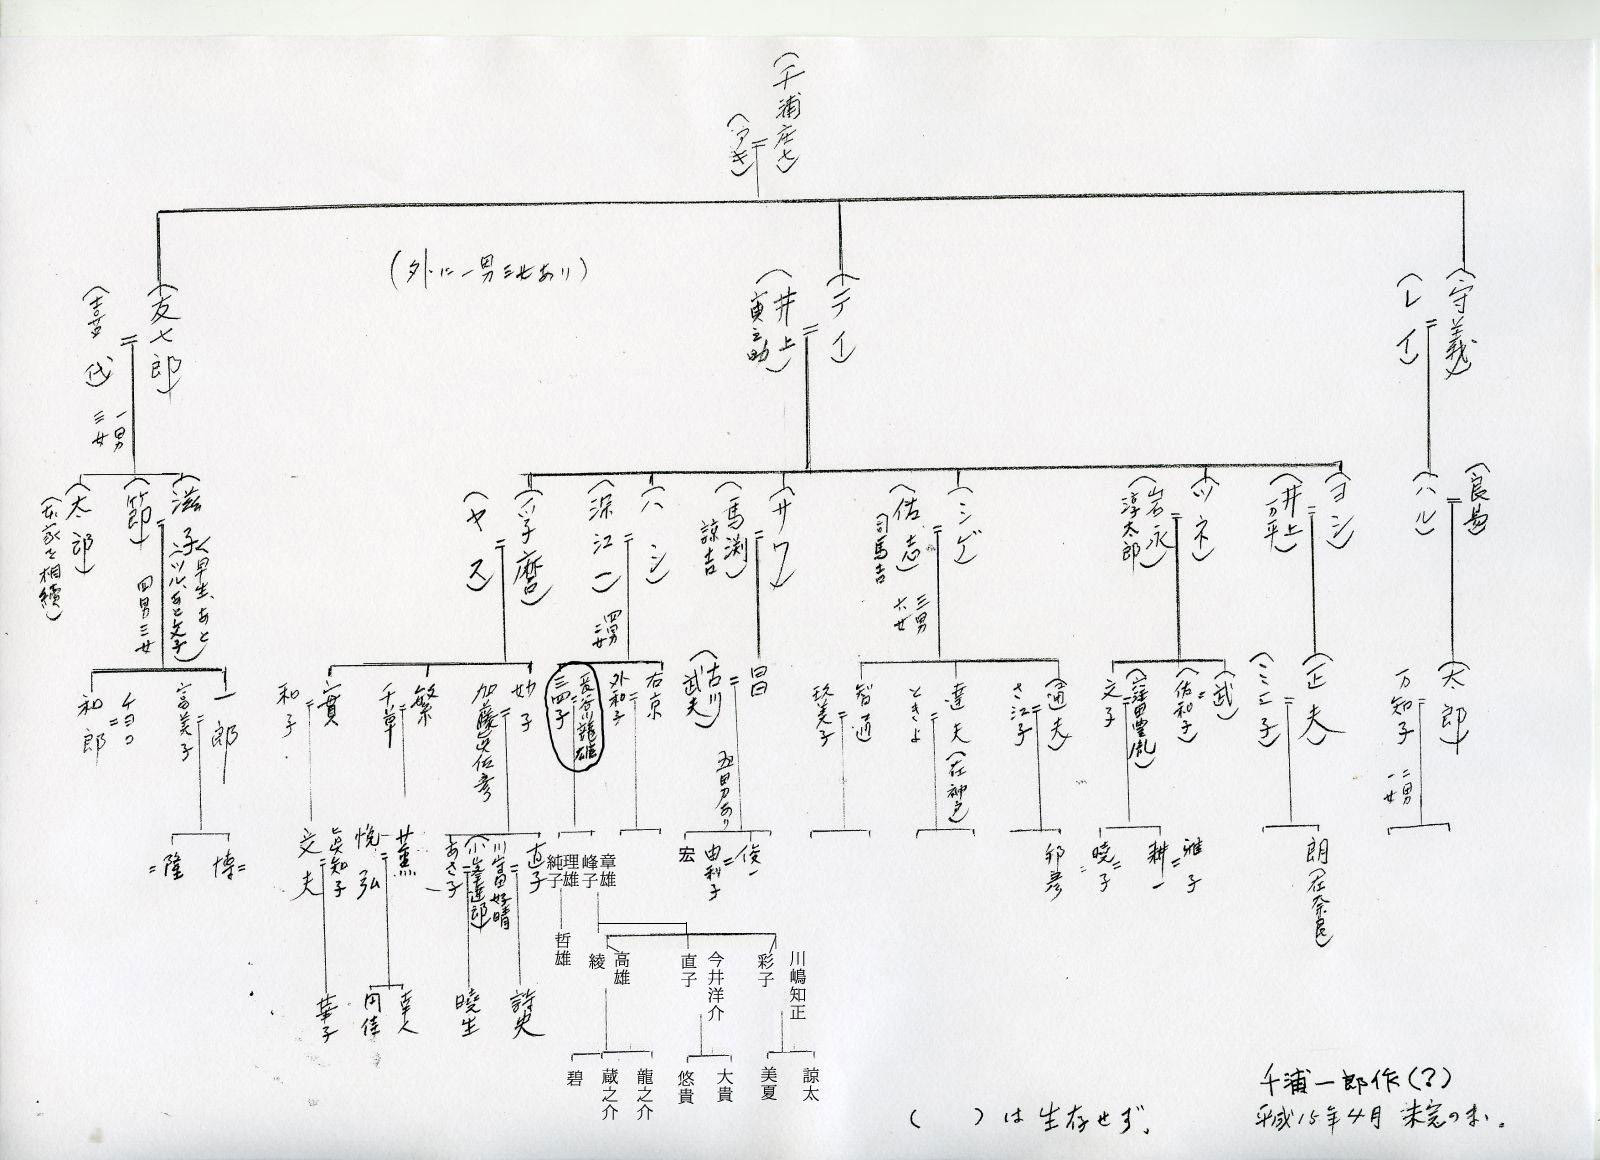 (千浦庄七)
(アキ)
(外に一男三女あり)
(守義)
(レイ)
(テイ)
(井上
寅之助)
(友七郎)
(喜代)
一男
三女
(良易)
(ハル)
(ヨシ)
(井上
万平)
(ツネ)
(岩永
淳太郎)
(シゲ)
(佑志)
(司馬吉)
三男
六女
(サワ)
(馬渕)
諒吉
(ハシ)
(深江一)
四男
二女
(孚麿)
(ヤス)
滋子
(早生、あと
ツル、あと文子)
(節郎)
四男三女
(太郎)
(本家を相続)
(太郎)
万知子
二男
一女
(正夫)
(ミエ子)
(武)
(佑和子)
文子
(通夫)
さ江子
達夫(在神戸)
ときよ
智道
玖美子
昌
(古川
武夫)
五男あり
右京
外和子
長谷川龍雄
三四子
妙子
加藤英佐彦
繁
千草
寛
和子
一郎
富美子
チヨコ
和郎
朗(在奈良)
雅子
耕一
暁子
邦彦
俊一
由利子
宏
章雄
峰子
理雄
純子
直子
川富好晴
あさ子
薫
悦弘
眞知子
文夫
博
隆
哲雄
川嶋知正
彩子
今井洋介
直子
高雄
綾
詩史
暁生
幸人
円佳
華子
諒太
美夏
大貴
悠貴
龍之介
蔵之介
碧
( )は生存せず.
千浦一郎作(了)
平成15年4月 未完のまゝ.